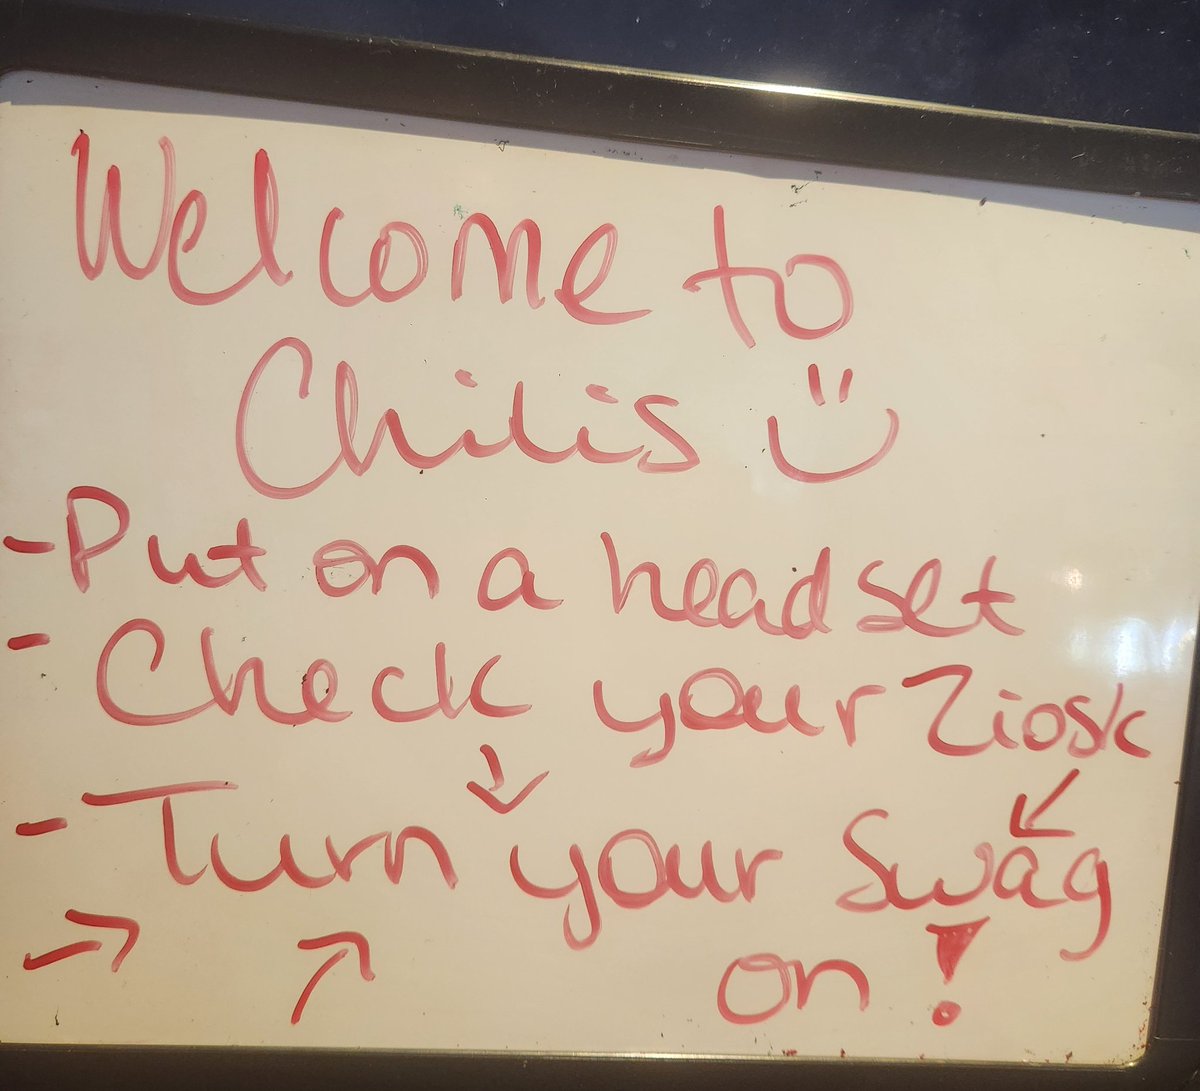 Welcome to
Chilis
- Put on a headset
- Check your Ziosk
- Turn your Swag
on!